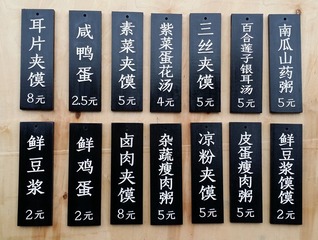 耳片夹馍
8元
咸鸭蛋
2.5元
素菜夹馍
5元
紫菜蛋花汤
4元
三丝夹馍
5元
百合莲子银耳汤
5元
南瓜山药粥
5元
鲜豆浆
2元
鲜鸡蛋
2元
卤肉夹馍
8元
杂蔬瘦肉粥
5元
凉粉夹馍
5元
皮蛋瘦肉粥
5元
鲜豆浆馍馍
2元